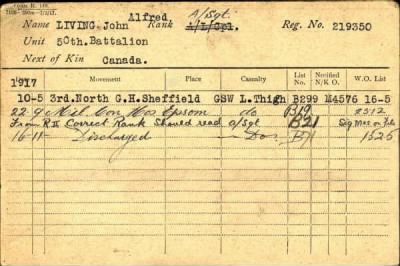 Form R. 149.
Alfred A/Sgt.
Name LIVING, John Rank A/L/Cpl. Reg. No. 219350
Unit 50th. Battalion
Next of Kin Canada.
1917 Movement Place Casualty List No. Notified N/K.O. W.O. List
10-5 3rd. North G.H. Sheffield GSW L.Thigh B299 M4576 16-5
22.9 Mil. Con. Hos Epsom do 2512
From R II Correct Rank Should read a/Sgt B21
16-11- Discharged - Do - B71 1525